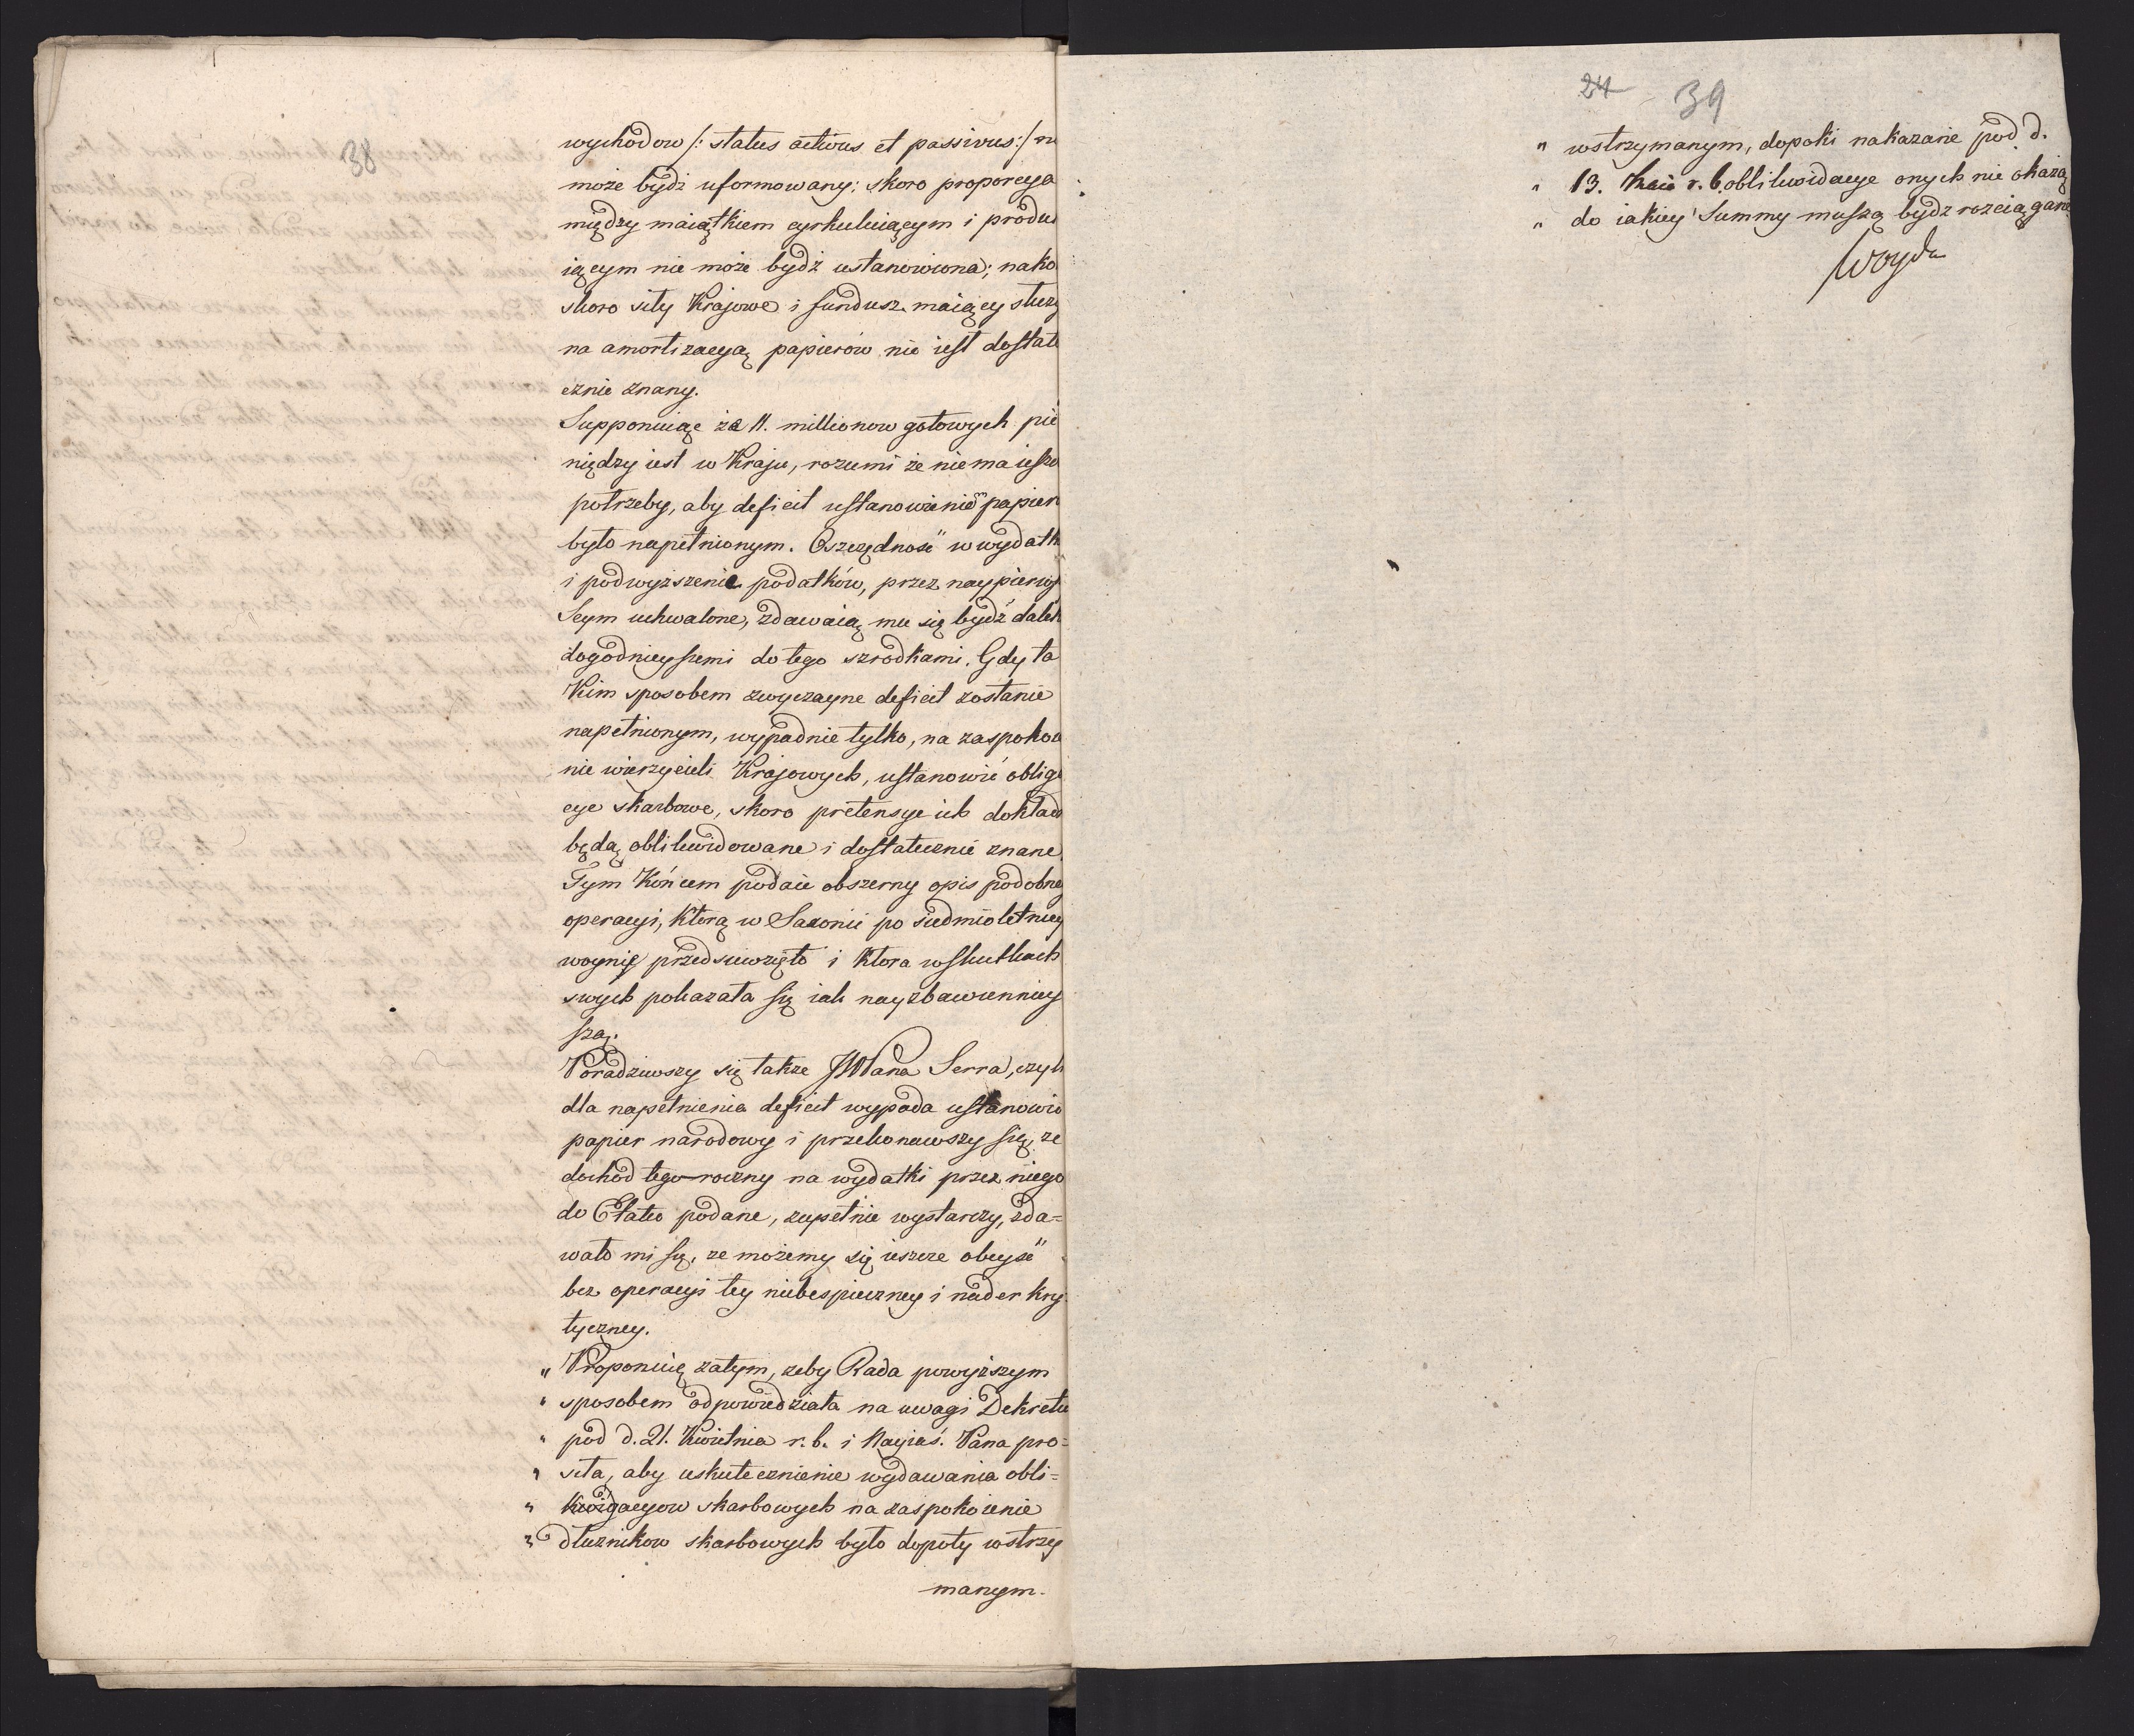 38
wychodow /: status activus et passivus:/ n
może bydź uformowany; skoro proporcya
między maiątkiem cyrkuluiącym i produ
iącym nie może bydź ustanowiona; nako
skoro siły Krajowe i fundusz maiący służ
na amortizacyą papierów nie iest dostate
cznie znany.
Supponuiąc że 11. millionow gotowych pie
niędzy iest w Kraju, rozumi że niema ieszc
potrzeby, aby deficit ustanowienie papier
było napełnionym. Oszczędnosć w wydatk
i podwyższenie podatków, przez naypierwsz
Seym uchwalone, zdawaią mu się bydź dalek
dogodnieyszemi do tego szrodkami. Gdy ta
kim sposobem zwyczayne deficit zostanie
napełnionym, wypadnie tylko, na zaspokoie
nie wierzycieli Krajowych, ustanowić obliga
cye skarbowe, skoro pretensye ich dokład
będą oblikwidowane i dostatecznie znane.
Tym Końcem podaie obszerny opis podobney
operacyi, którą w Saxonii po siedmioletniey
woynie przedsiewzięto i która w skutkach
swych pokazała się iak nayzbawienniey
szą.
Poradziwszy się także JWPana Serra, czyli
dla napełnienia deficit wypada ustanowić
papier narodowy i przekonawszy się, że
dochod tego-roczny na wydatki przez niego
do Etatu podane, zupełnie wystarczy, zda=
wało mi się, że możemy się ieszcze obeyść
bez operacyi tey niebespieczney i nader kry
tyczney.
„ Proponuię zatym, żeby Rada powyższym
„ sposobem odpowiedziała na uwagi Dekretu
„ pod d. 21. Kwietnia r. b. i Nayiaś. Pana pro=
„ siła, aby uskutecznienie wydawania obli=
„ kwidacyow skarbowych na zaspokoienie
„ dłużnikow skarbowych było dopoty wstrzy
manym.
24 39
„ wstrzymanym, dopoki nakazane pod d.
„ 13. r. b. oblikwidacye onych nie okażą
„ do iakiey Summy muszą bydź rozciągane
Woyda